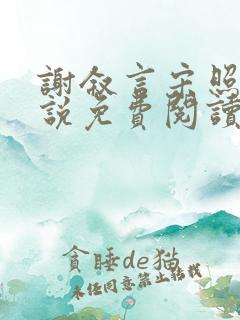 謝敘言宋照
說免費閱讀
貪睡de猫
未经同意禁止转载